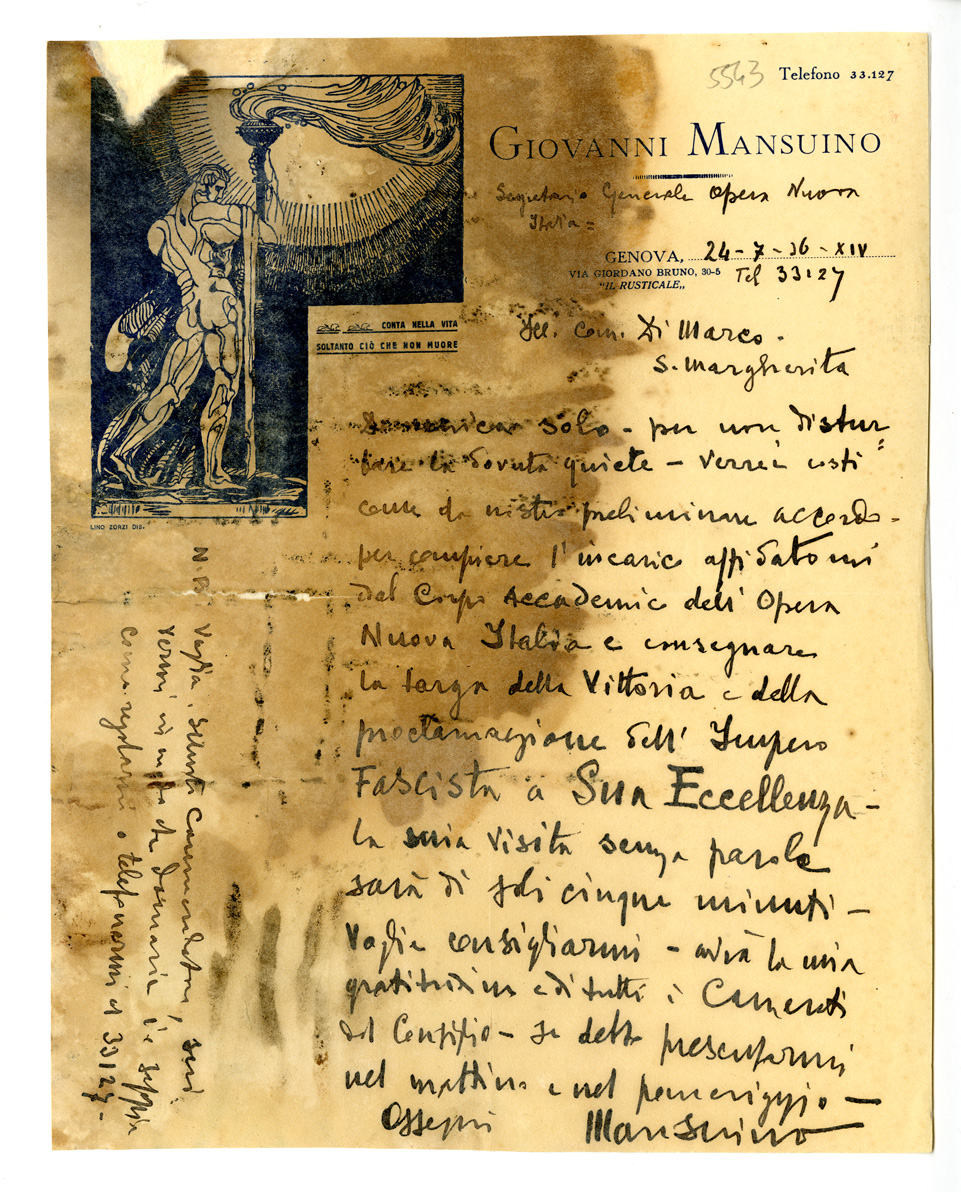 5543
Telefono 33.127
GIOVANNI MANSUINO
Segretario Generale Opera Nuova
Italia =
GENOVA, 24-7-36-XIV
VIA GIORDANO BRUNO, 30-5
"IL RUSTICALE„
Tel 33127
CONTA NELLA VITA
SOLTANTO CIÒ CHE NON MUORE
LINO ZORZI DIS.
Ill. Com. Di Marco -
S. Margherita
Domenica solo - per non distur=
bare la dovuta quiete - verrei costì
come da nostro preliminare accordo -
per compiere l'incarico affidatomi
dal Corpo Accademico dell'Opera
Nuova Italia e consegnare
la targa della Vittoria e della
proclamazione dell'Impero
Fascista a Sua Eccellenza -
la mia visita senza parole
sarà di soli cinque minuti -
Voglia consigliarmi - avrà la mia
gratitudine e di tutti i Camerati
del Consiglio - se debbo presentarmi
nel mattino o nel pomeriggio -
Ossequi Mansuino
N.B.
Voglia, Illustre Commendatore,
in modo che Domenica io sappia
come regolarmi o telefonarmi al 33127-